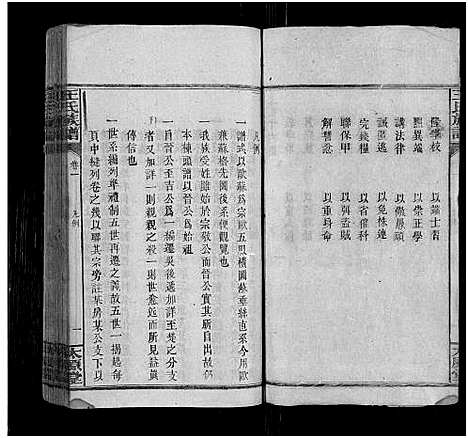 隆學校 以端士習
黜異端 以崇正學
講法律 以儆愚頑
誡匿逃 以免株連
完錢糧 以省催科
聯保甲 以弭盜賊
解讐忿 以重身命
凡例
一譜式以歐蘇為宗歐五世橫圖蘇垂絲直系今用歐
兼蘇格先圖後系便觀覽也
一我族受姓始於宗敬公而晉公實其所自出故仍
本棟頭譜以晉公為始祖
一自晉公至吉公為一搨遷吳後這詳至楚之分支
者又加詳焉一則親親之殺一則世愈近而所見益真
傳信也
一世系編列準禮制五世再遷之義故五世一搨起每
頁中樾列卷之幾以聯其宗旁註某房某公支下以
王氏族譜
卷一
凡例
一
太原堂